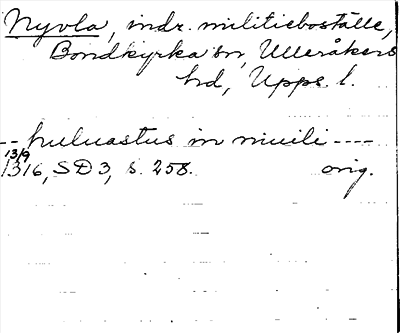 Nyvla, indr. militieboställe,
Bondkyrka sn, Ulleråkers
hd, Upps. l.
-- huluastus in niuili ----
13/9
1316, SD 3, s. 258. orig.